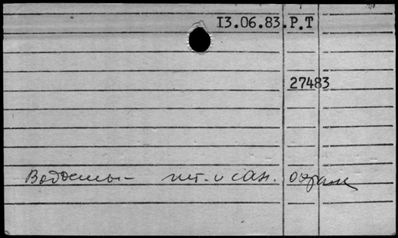 13.06.83.Р.Т
27483
Водоемы - пит. и сан. охрана